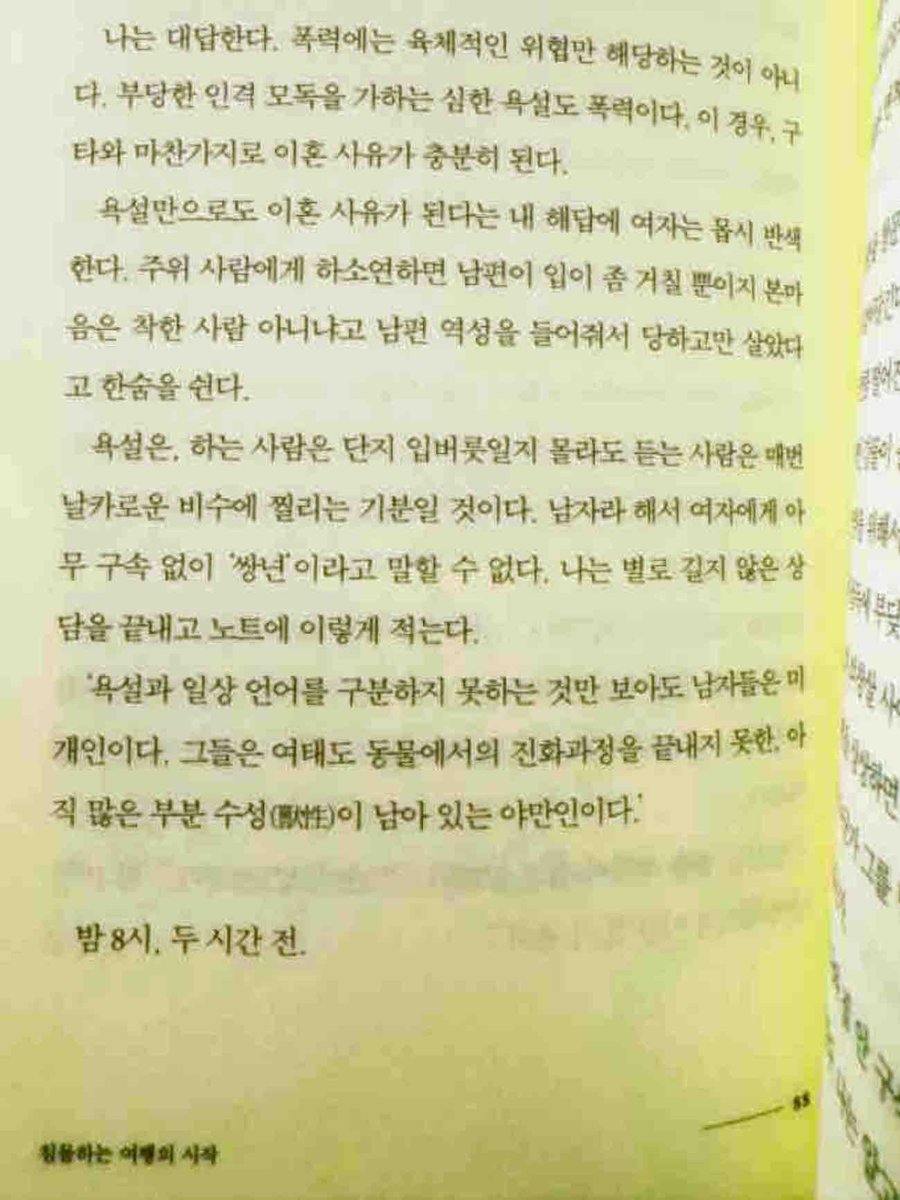 나는 대답한다. 폭력에는 육체적인 위협만 해당하는 것이 아니
다. 부당한 인격 모독을 가하는 심한 욕설도 폭력이다. 이 경우, 구
타와 마찬가지로 이혼 사유가 충분히 된다.
욕설만으로도 이혼 사유가 된다는 내 해답에 여자는 몹시 반색
한다. 주위 사람에게 하소연하면 남편이 입이 좀 거칠 뿐이지 본마
음은 착한 사람 아니냐고 남편 역성을 들어줘서 당하고만 살았다
고 한숨을 쉰다.
욕설은, 하는 사람은 단지 입버릇일지 몰라도 듣는 사람은 매번
날카로운 비수에 찔리는 기분일 것이다. 남자라 해서 여자에게 아
무 구속 없이 '쌍년'이라고 말할 수 없다. 나는 별로 길지 않은 상
담을 끝내고 노트에 이렇게 적는다.
'욕설과 일상 언어를 구분하지 못하는 것만 보아도 남자들은 미
개인이다. 그들은 여태도 동물에서의 진화과정을 끝내지 못한, 아
직 많은 부분 수성(獸性)이 남아 있는 야만인이다.'
밤 8시, 두 시간 전.
하는 여행의 시작